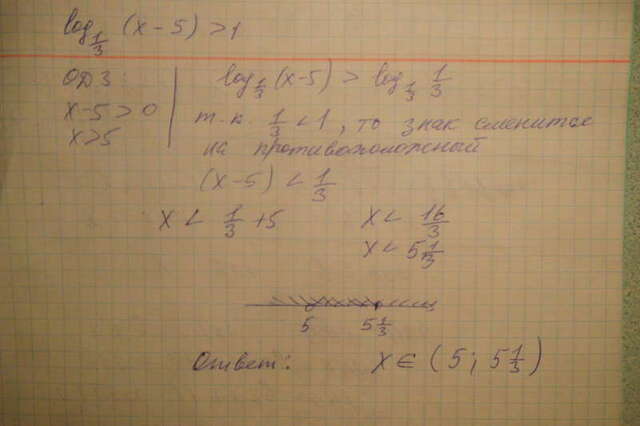 log_{1/3} (x - 5) > 1
ОДЗ:
x - 5 > 0
x > 5
log_{1/3} (x-5) > log_{1/3} 1/3
т.к. 1/3 < 1, то знак сменится
на противоположный
(x-5) < 1/3
x < 1/3 + 5
x < 16/3
x < 5 1/3
5 5 1/3
Ответ: x ∈ (5; 5 1/3)